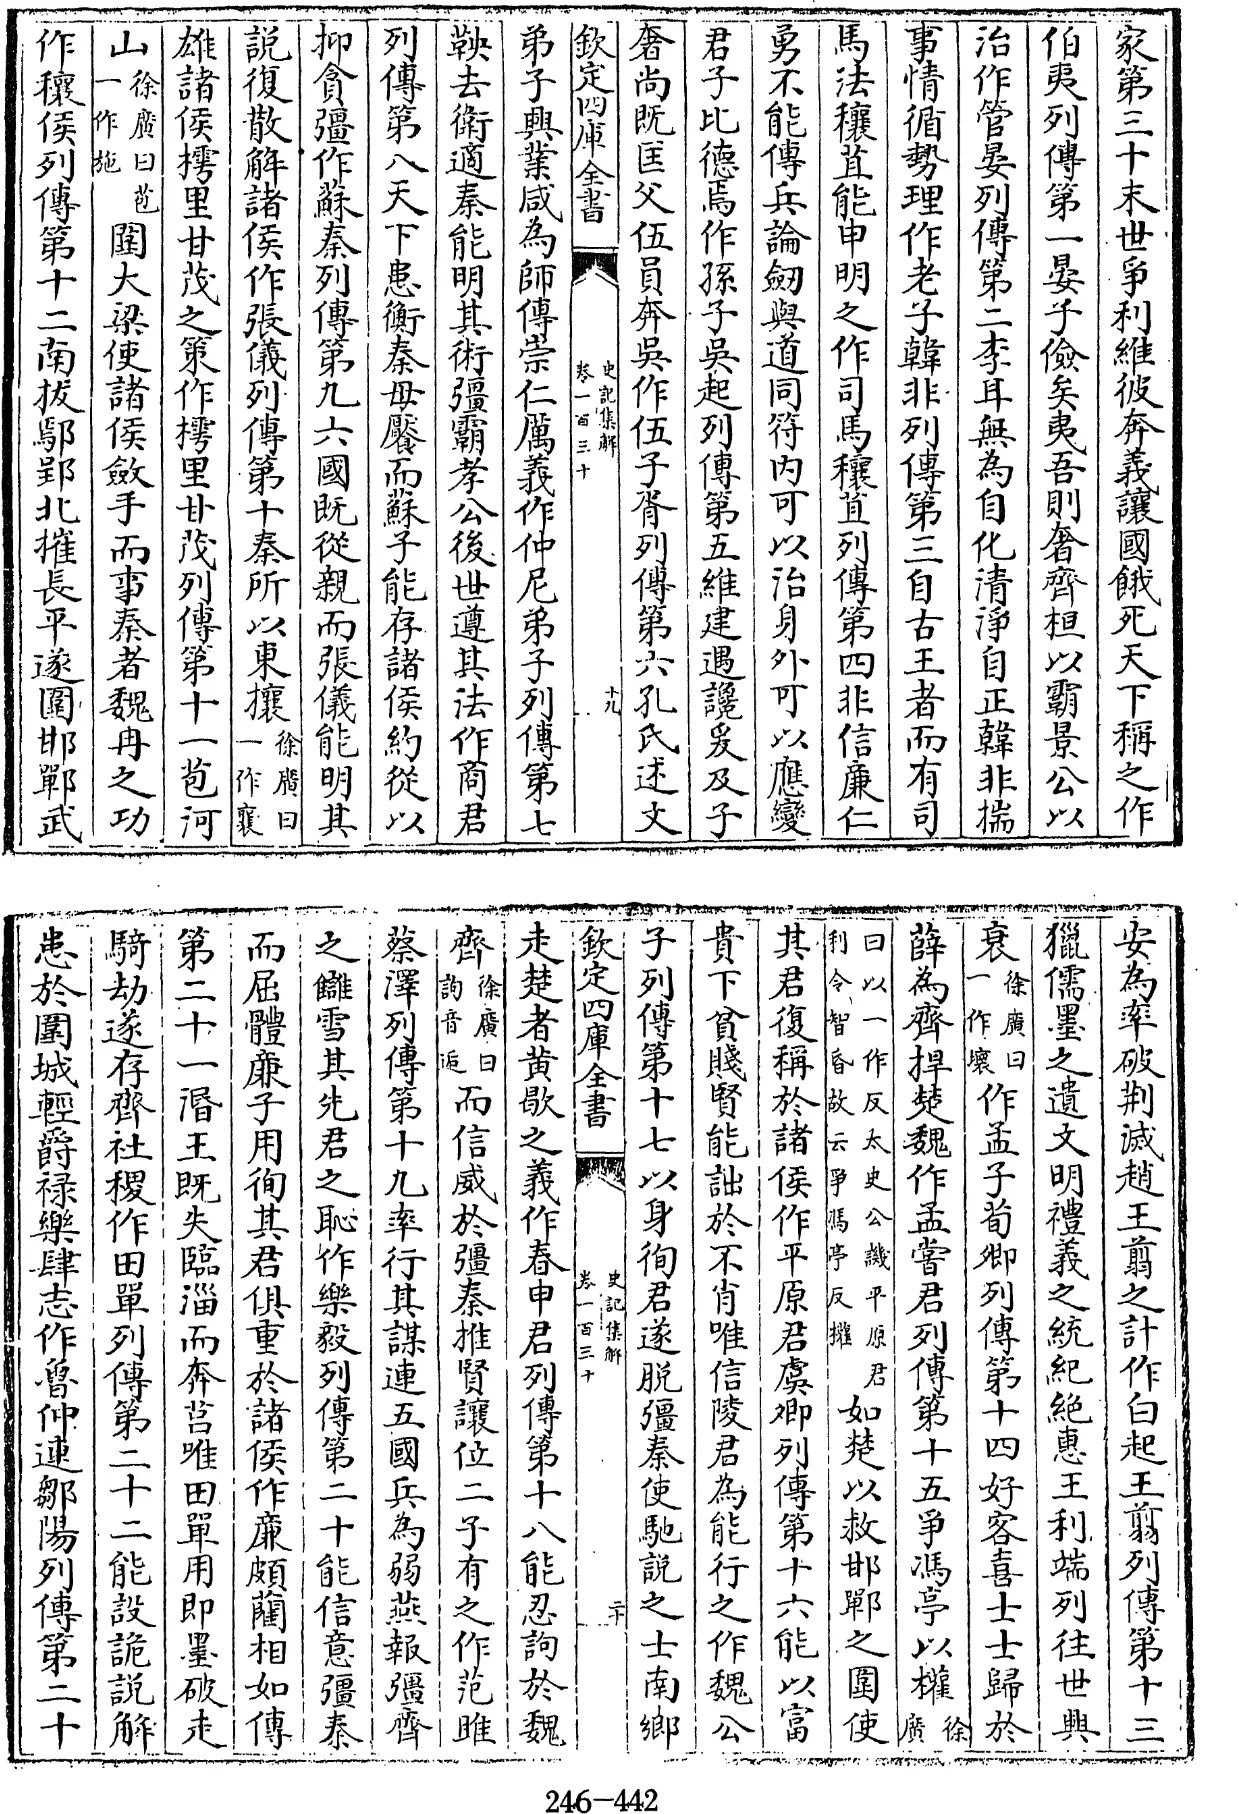 家第三十末世爭利維彼奔義讓國餓死天下稱之作
伯夷列傳第一晏子儉矣夷吾則奢齊桓以霸景公以
治作管晏列傳第二李耳無為自化清淨自正韓非揣
事情循勢理作老子韓非列傳第三自古王者而有司
馬法穰苴能申明之作司馬穰苴列傳第四非信廉仁
勇不能傳兵論劒與道同符内可以治身外可以應變
君子比德焉作孫子吳起列傳第五維建遇讒爰及子
奢尚既匡父伍員奔吳作伍子胥列傳第六孔氏述文
欽定四庫全書
史記集解
卷一百三十
十九
弟子興業咸為師傅崇仁厲義作仲尼弟子列傳第七
鞅去衛適秦能明其術彊霸孝公後世遵其法作商君
列傳第八天下患衡秦毋饜而蘇子能存諸侯約從以
抑貪彊作蘇秦列傳第九六國既從親而張儀能明其
說復散解諸侯作張儀列傳第十秦所以東攘徐廣曰一作襄
雄諸侯樗里甘茂之策作樗里甘茂列傳第十一苞河
山徐廣曰苞一作施圍大梁使諸侯斂手而事秦者魏冉之功
作穰侯列傳第十二南拔鄢郢北摧長平遂圍邯鄲武
安為率破荆滅趙王翦之計作白起王翦列傳第十三
獵儒墨之遺文明禮義之統紀絶惠王利端列往世興
衰徐廣曰一作壞作孟子荀卿列傳第十四好客喜士士歸於
薛為齊捍楚魏作孟嘗君列傳第十五爭馮亭以權徐廣
曰以一作反太史公譏平原君利令智昏故云爭馮亭反權如楚以救邯鄲之圍使
其君復稱於諸侯作平原君虞卿列傳第十六能以富
貴下貧賤賢能詘於不肖唯信陵君為能行之作魏公
子列傳第十七以身徇君遂脱彊秦使馳説之士南鄉
欽定四庫全書
史記集解
卷一百三十
二十
走楚者黄歇之義作春申君列傳第十八能忍訽於魏
齊徐廣曰訽音逅而信威於彊秦推賢讓位二子有之作范雎
蔡澤列傳第十九率行其謀連五國兵為弱燕報彊齊
之讎雪其先君之恥作樂毅列傳第二十能信意彊秦
而屈體廉子用徇其君俱重於諸侯作廉頗藺相如傳
第二十一湣王既失臨淄而奔莒唯田單用即墨破走
騎劫遂存齊社稷作田單列傳第二十二能設詭説解
患於圍城輕爵禄樂肆志作魯仲連鄒陽列傳第二十
246-442